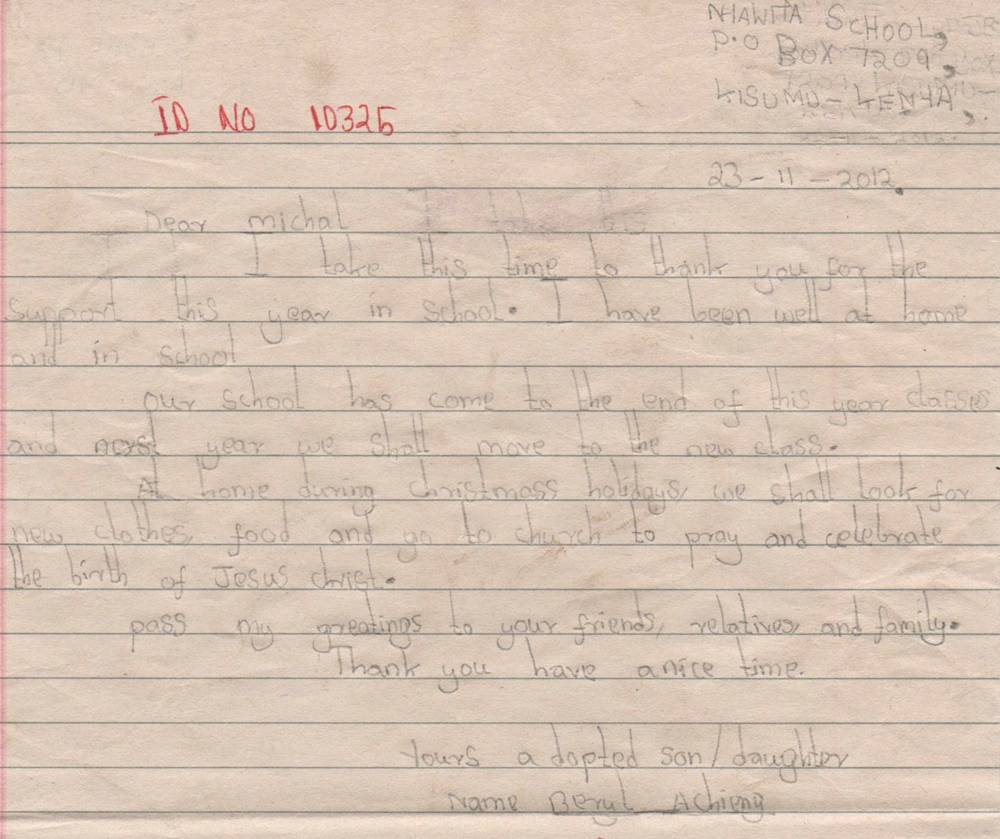 NHAWITA SCHOOL,
P.O BOX 7209,
KISUMU - KENYA,.
ID NO 10325
23 - 11 - 2012.
Dear michal
I take this time to thank you for the
support this year in school. I have been well at home
and in school
our school has come to the end of this year classes
and next year we shall move to the new class.
At home during christmass holidays, we shall look for
new clothes, food and go to church to pray and celebrate
the birth of Jesus christ.
pass my greatings to your friends, relatives, and family.
Thank you have a nice time.
Yours adopted son/daughter
Name Beryl Achieng